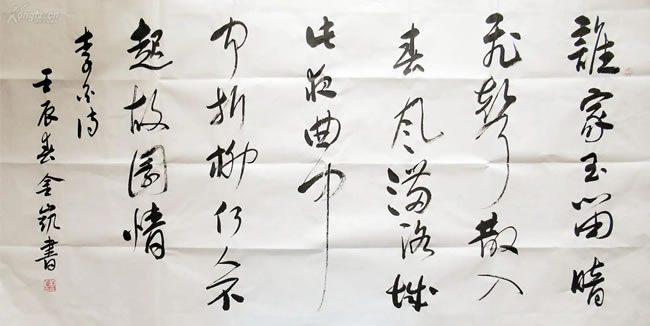 誰家玉笛暗
飛聲散入
春風滿洛城
此夜曲中
聞折柳何人不
起故園情
李白詩
壬辰春金凱書